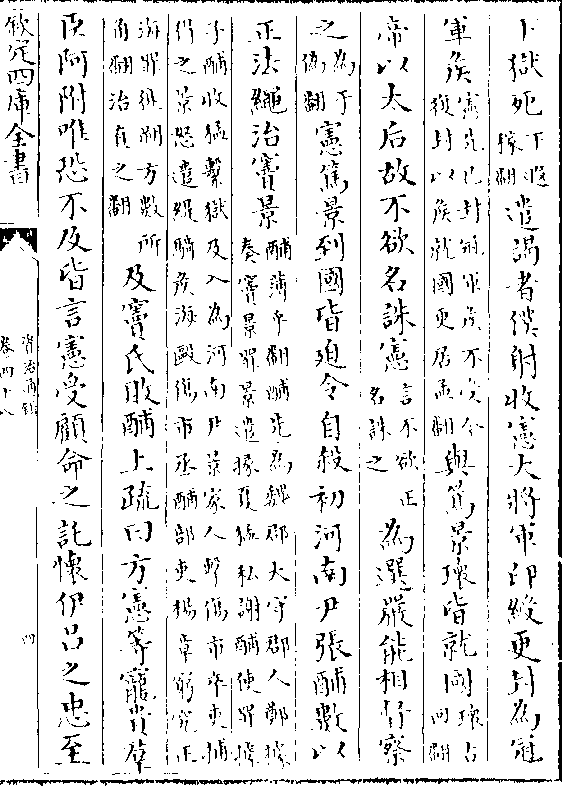 下獄死下遐稼翻遣謁者僕射收憲大將軍印綬更封為冠
軍侯憲先已封冠軍侯不受今復封以侯就國更居孟翻與篤景瓌皆就國瓌古回翻
帝以太后故不欲名誅憲言不欲正名誅之為選嚴能相督察
之為于偽翻憲篤景到國皆迫令自殺初河南尹張酺數以
正法繩治竇景酺蒲乎翻酺先為魏郡太守郡人鄭據奏竇景罪景遣掾夏猛私謝酺使罪據
子酺收猛繫獄及入為河南尹景家人擊傷市卒吏捕得之景怒遣緹騎侯海毆傷市丞酺部吏楊章窮究正
海罪徙朔方數所角翻治直之翻及竇氏敗酺上疏曰方憲等寵貴羣
臣阿附唯恐不及皆言憲受顧命之託懷伊吕之忠至
欽定四庫全書
資治通鑑
卷四十八
四